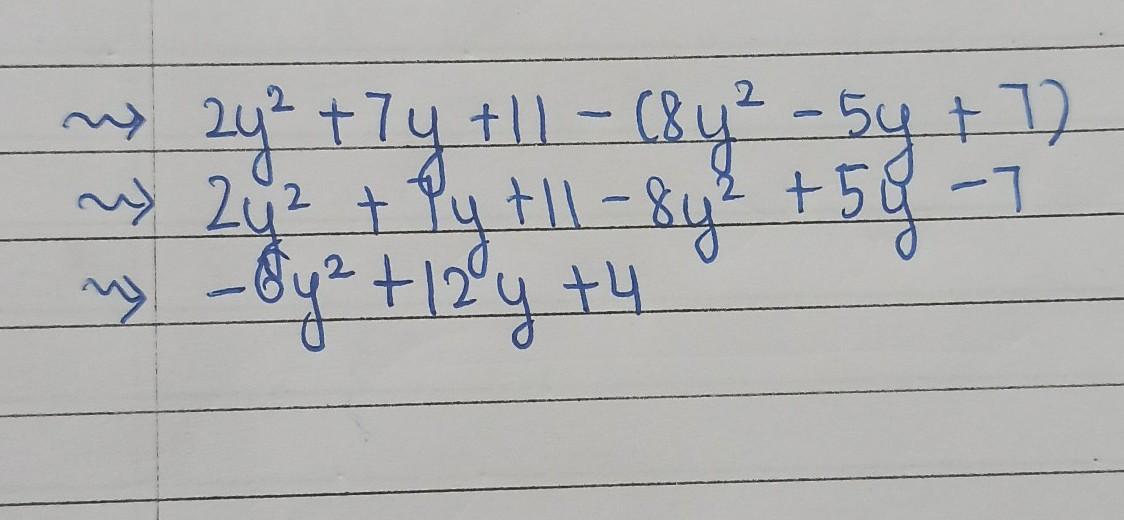 ⇝ 2y² + 7y + 11 - (8y² - 5y + 7)
⇝ 2y² + 7y + 11 - 8y² + 5y - 7
⇝ -6y² + 12y + 4